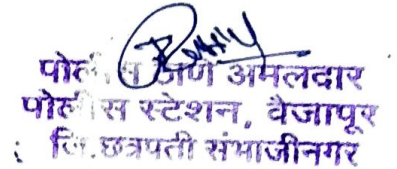 पोलीस ठाणे अमलदार
पोलीस स्टेशन, वैजापूर
जि.छत्रपती संभाजीनगर